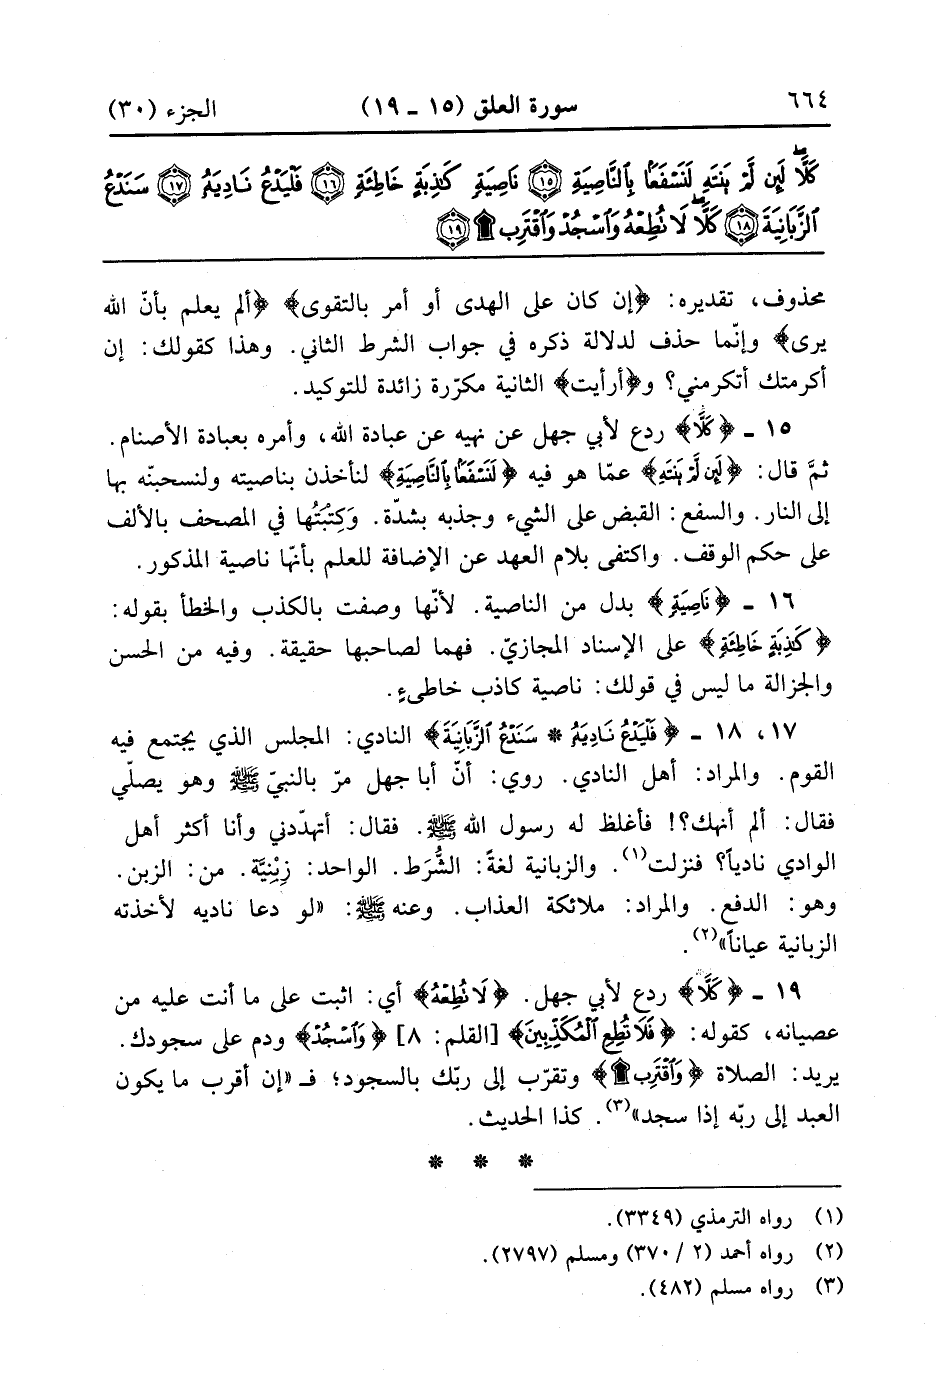 ٦٦٤ سورة العلق (١٥ ـ ١٩) الجزء (٣٠)
كَلَّا لَئِن لَّمْ يَنتَهِ لَنَسْفَعًا بِالنَّاصِيَةِ ١٥ نَاصِيَةٍ كَاذِبَةٍ خَاطِئَةٍ ١٦ فَلْيَدْعُ نَادِيَهُ ١٧ سَنَدْعُ
الزَّبَانِيَةَ ١٨ كَلَّا لَا تُطِعْهُ وَاسْجُدْ وَاقْتَرِب ۩ ١٩
محذوف، تقديره: ﴿إن كان على الهدى أو أمر بالتقوى﴾ ﴿ألم يعلم بأنّ الله
يرى﴾ وإنّما حذف لدلالة ذكره في جواب الشرط الثاني. وهذا كقولك: إن
أكرمتك أتكرمني؟ و﴿أرأيت﴾ الثانية مكرّرة زائدة للتوكيد.
١٥ ـ ﴿كَلَّا﴾ ردع لأبي جهل عن نهيه عن عبادة الله، وأمره بعبادة الأصنام.
ثمَّ قال: ﴿لَئِن لَّمْ يَنتَهِ﴾ عمّا هو فيه ﴿لَنَسْفَعًا بِالنَّاصِيَةِ﴾ لنأخذن بناصيته ولنسحبنّه بها
إلى النار. والسفع: القبض على الشيء وجذبه بشدّة. وَكِتْبَتُها في المصحف بالألف
على حكم الوقف. واكتفى بلام العهد عن الإضافة للعلم بأنهّا ناصية المذكور.
١٦ ـ ﴿نَاصِيَةٍ﴾ بدل من الناصية. لأنّها وصفت بالكذب والخطأ بقوله:
﴿كَاذِبَةٍ خَاطِئَةٍ﴾ على الإسناد المجازيّ. فهما لصاحبها حقيقة. وفيه من الحسن
والجزالة ما ليس في قولك: ناصية كاذب خاطىءٍ.
١٧، ١٨ ـ ﴿فَلْيَدْعُ نَادِيَهُ * سَنَدْعُ الزَّبَانِيَةَ﴾ النادي: المجلس الذي يجتمع فيه
القوم. والمراد: أهل النادي. روي: أنّ أبا جهل مرّ بالنبيّ ﷺ وهو يصلّي
فقال: ألم أنهك؟! فأغلظ له رسول الله ﷺ. فقال: أتهدّدني وأنا أكثر أهل
الوادي نادياً؟ فنزلت(١). والزبانية لغةً: الشُّرَط. الواحد: زِبْنِيَّة. من: الزبن.
وهو: الدفع. والمراد: ملائكة العذاب. وعنه ﷺ: «لو دعا ناديه لأخذته
الزبانية عياناً»(٢).
١٩ ـ ﴿كَلَّا﴾ ردع لأبي جهل. ﴿لَا تُطِعْهُ﴾ أي: اثبت على ما أنت عليه من
عصيانه، كقوله: ﴿فَلَا تُطِعِ الْمُكَذِّبِينَ﴾ [القلم: ٨] ﴿وَاسْجُدْ﴾ ودم على سجودك.
يريد: الصلاة ﴿وَاقْتَرِب ۩﴾ وتقرّب إلى ربّك بالسجود؛ فـ «إن أقرب ما يكون
العبد إلى ربّه إذا سجد»(٣). كذا الحديث.
* * *
(١) رواه الترمذي (٣٣٤٩).
(٢) رواه أحمد (٢/ ٣٧٠) ومسلم (٢٧٩٧).
(٣) رواه مسلم (٤٨٢).